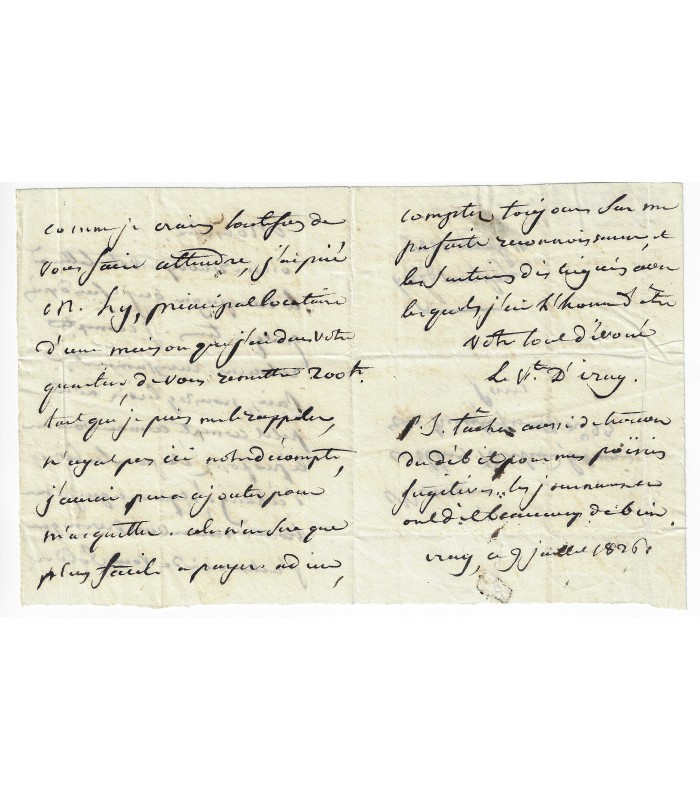 comme je crains toutefois de
vous faire attendre, j'ai prié
Mr. hy, principal locataire
d'une maison que j'ai dans votre
quartier de vous remettre 200 f.
tant que je puis me le rappeler,
n'ayant pas ici notre décompte,
j'aurai peu a ajouter pour
m'acquitter. cela n'en sera que
plus facile a payer. adieu,
comptez toujours sur ma
parfaite reconnoissance, et
les sentimens distingués avec
lesquels j'ai l'honneur d'être
votre tout dévoué
Le Vte. D'iray.
P.S. tâchez aussi de trouver
du débit pour mes poësies
fugitives.. les journaux en
ont dit beaucoup de bien.
iray, ce 9 juillet 1826.